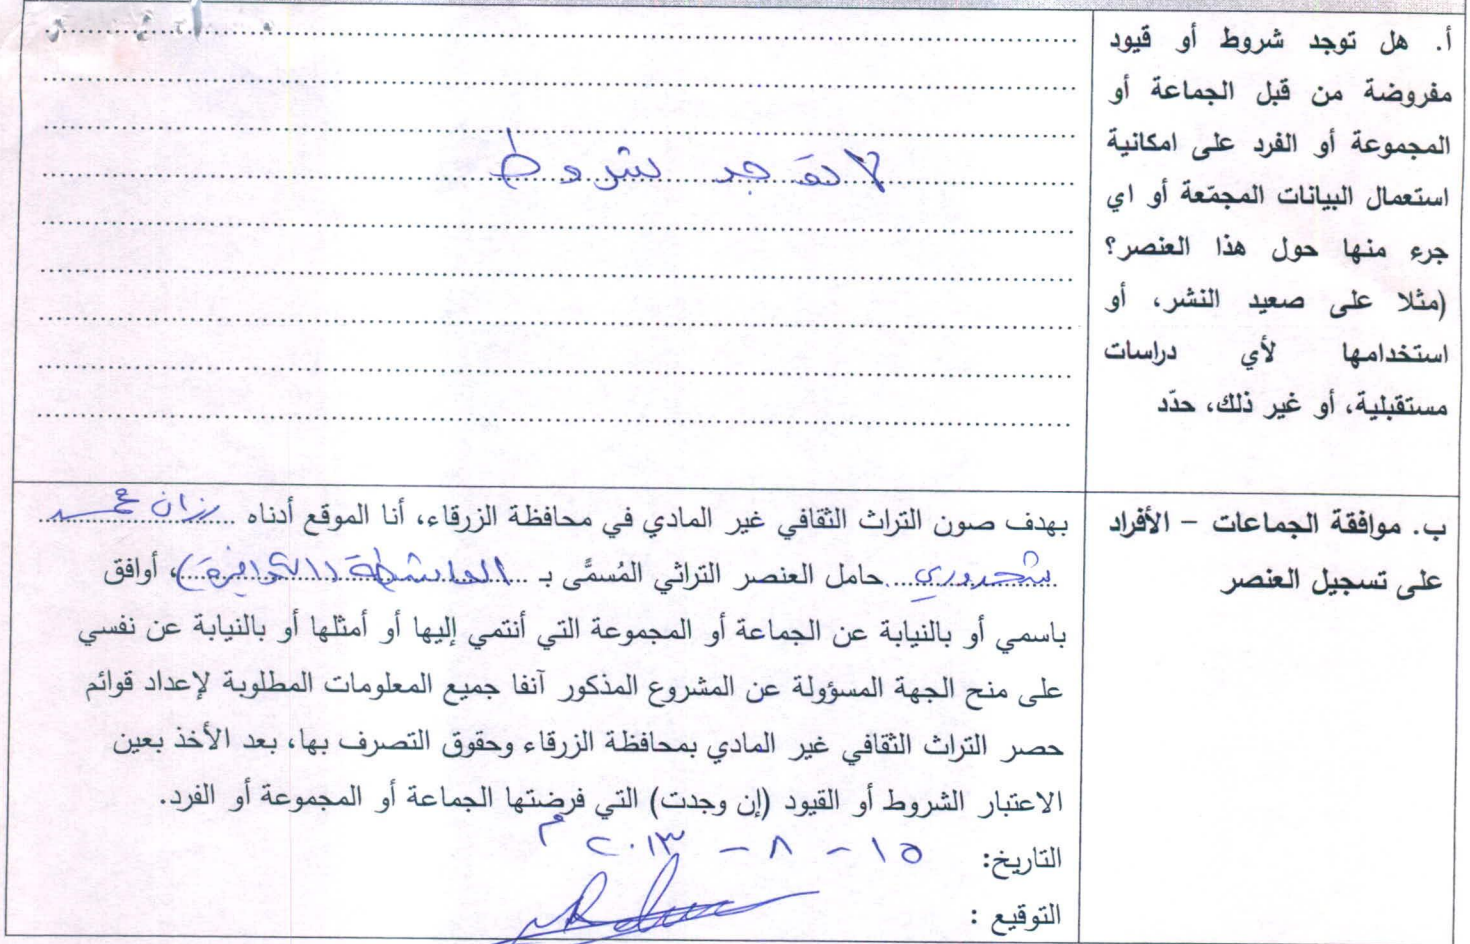 أ. هل توجد شروط أو قيود
مفروضة من قبل الجماعة أو
المجموعة أو الفرد على امكانية
استعمال البيانات المجمّعة أو اي
جرء منها حول هذا العنصر؟
(مثلا على صعيد النشر، أو
استخدامها لأي دراسات
مستقبلية، أو غير ذلك، حدّد
لا توجد شروط
ب. موافقة الجماعات – الأفراد
على تسجيل العنصر
بهدف صون التراث الثقافي غير المادي في محافظة الزرقاء، أنا الموقع أدناه رزان محمد
شحروري حامل العنصر التراثي المُسمَّى بـ الماشطة (الكوافيرة)، أوافق
باسمي أو بالنيابة عن الجماعة أو المجموعة التي أنتمي إليها أو أمثلها أو بالنيابة عن نفسي
على منح الجهة المسؤولة عن المشروع المذكور آنفا جميع المعلومات المطلوبة لإعداد قوائم
حصر التراث الثقافي غير المادي بمحافظة الزرقاء وحقوق التصرف بها، بعد الأخذ بعين
الاعتبار الشروط أو القيود (إن وجدت) التي فرضتها الجماعة أو المجموعة أو الفرد.
التاريخ: ١٥ - ٨ - ٢٠١٣ م
التوقيع :